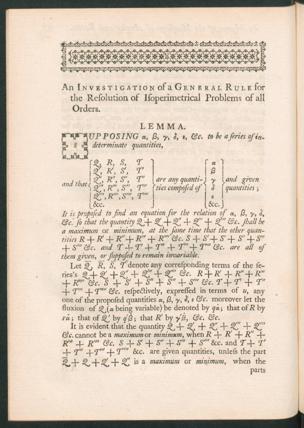 An Investigation of a General Rule for
the Resolution of Isoperimetrical Problems of all
Orders.
LEMMA.
SUPPOSING α, β, γ, δ, ε, &c. to be a series of in-
determinate quantities,
and that
Q, R, S, T
&c.
are any quanti-
ties composed of
α
β
γ
δ
&c.
and given
quantities;
It is proposed to find an equation for the relation of α, β, γ, δ,
&c. so that the quantity Q + Q′ + Q″ + Q‴ &c. shall be
a maximum or minimum, at the same time that the other quan-
tities R + R′ + R″ + R‴ &c. S + S′ + S″
+ S‴ &c. and T + T′ + T″ + T‴ &c. are all of
them given, or supposed to remain invariable.
Let Q, R, S, T denote any corresponding terms of the se-
ries's Q + Q′ + Q″ + Q‴ &c. R + R′ + R″
+ R‴ &c. S + S′ + S″ + S‴ &c. T + T′
+ T″ + T‴ &c. respectively, expressed in terms of any
one of the proposed quantities α, β, γ, δ, ε &c. moreover let the
fluxion of Q (α being variable) be denoted by qα̇; that of R by
rα̇; that of Q′ by q′β̇; that of R′ by &c. &c.
It is evident that the quantity Q + Q′ + Q″ + Q‴
&c. cannot be a maximum or minimum, when R + R′ +
R″ + R‴ &c. S + S′ + S″ + S‴ &c. and T + T′
+ T″ + T‴ &c. are given quantities, unless the part
Q + Q′ + Q″ is a maximum or minimum, when the
parts